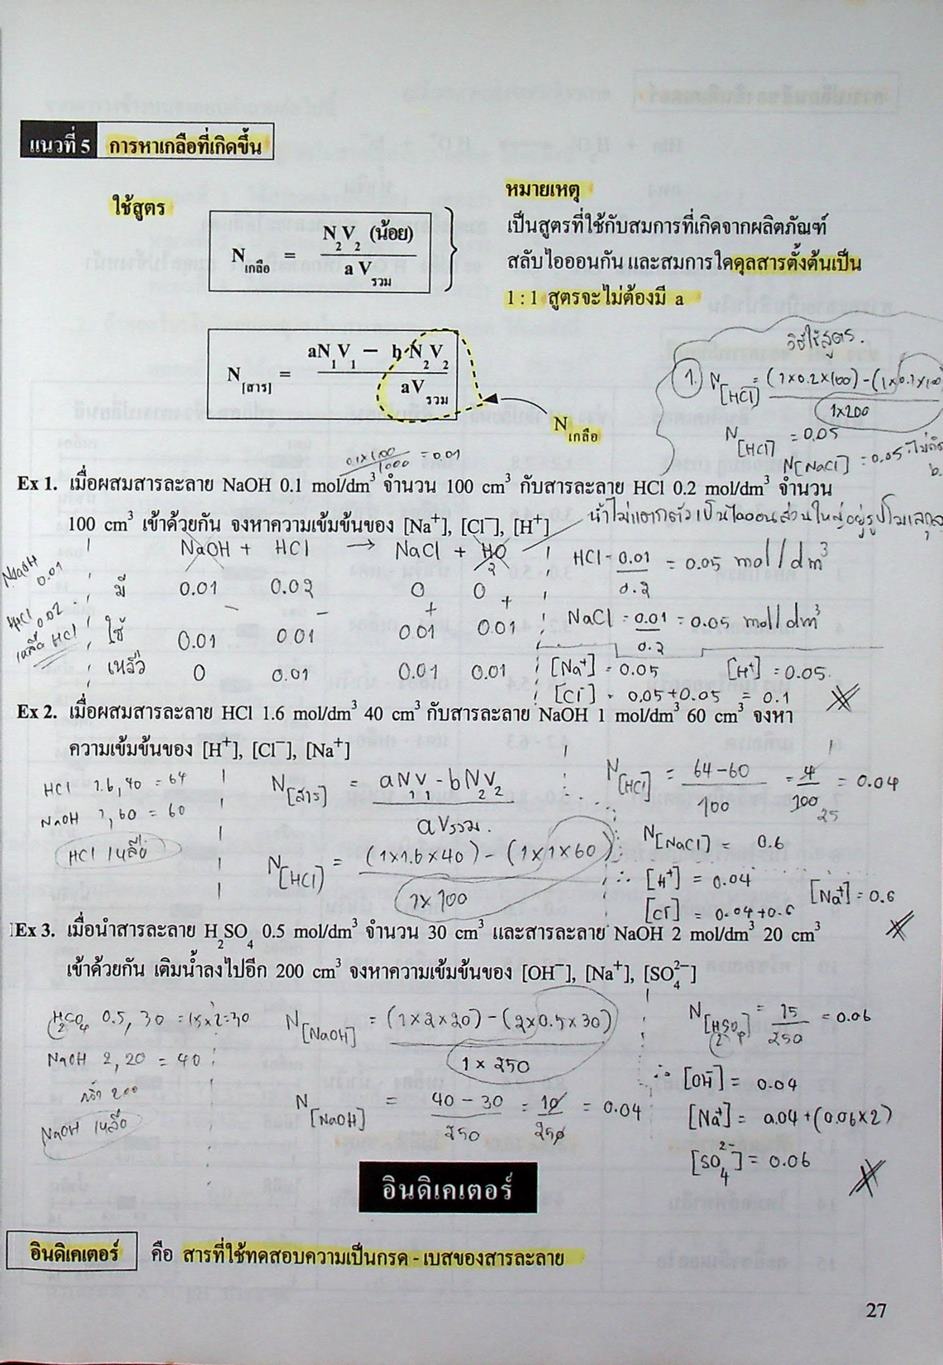 แนวที่ 5 การหาเกลือที่เกิดขึ้น
ใช้สูตร
N เกลือ = N₂V₂ (น้อย) / a V รวม
หมายเหตุ
เป็นสูตรที่ใช้กับสมการที่เกิดจากผลิตภัณฑ์
สลับไอออนกัน และสมการใดดุลสารตั้งต้นเป็น
1 : 1 สูตรจะไม่ต้องมี a
N [สาร] = aN₁V₁ − b·N₂V₂ / aV รวม
N เกลือ
วิธีใช้สูตร.
1. N [HCl] = (1x0.2x100)-(1x0.1x100) / 1x200
N [HCl] = 0.05
N [NaCl] = 0.05
0.1x100 / 1000 = 0.01
Ex 1. เมื่อผสมสารละลาย NaOH 0.1 mol/dm³ จำนวน 100 cm³ กับสารละลาย HCl 0.2 mol/dm³ จำนวน
100 cm³ เข้าด้วยกัน จงหาความเข้มข้นของ [Na⁺], [Cl⁻], [H⁺]
น้ำไม่แตกตัวเป็นไอออนส่วนใหญ่อยู่รูปโมเลกุล
NaOH + HCl → NaCl + H₂O
NaOH 0.01
HCl 0.02
เหลือ HCl
มี 0.01 0.02 0 0
ใช้ 0.01 0.01 0.01 0.01
เหลือ 0 0.01 0.01 0.01
HCl = 0.01 / 0.2 = 0.05 mol/dm³
NaCl = 0.01 / 0.2 = 0.05 mol/dm³
[Na⁺] = 0.05 [H⁺] = 0.05
[Cl⁻] = 0.05+0.05 = 0.1
Ex 2. เมื่อผสมสารละลาย HCl 1.6 mol/dm³ 40 cm³ กับสารละลาย NaOH 1 mol/dm³ 60 cm³ จงหา
ความเข้มข้นของ [H⁺], [Cl⁻], [Na⁺]
HCl 1.6, 40 = 64
NaOH 1, 60 = 60
HCl เหลือ
N [สาร] = aN₁V₁ - bN₂V₂ / aVรวม.
N [HCl] = (1x1.6x40) - (1x1x60) / 1x100
N [HCl] = 64-60 / 100 = 4 / 100 = 0.04
25
N [NaCl] = 0.6
∴ [H⁺] = 0.04 [Na⁺] = 0.6
[Cl⁻] = 0.04+0.6
Ex 3. เมื่อนำสารละลาย H₂SO₄ 0.5 mol/dm³ จำนวน 30 cm³ และสารละลาย NaOH 2 mol/dm³ 20 cm³
เข้าด้วยกัน เติมน้ำลงไปอีก 200 cm³ จงหาความเข้มข้นของ [OH⁻], [Na⁺], [SO₄²⁻]
H₂SO₄ 0.5, 30 = 15x2=30
NaOH 2, 20 = 40
200
NaOH เหลือ
N [NaOH] = (1x2x20)-(2x0.5x30) / 1x250
N [NaOH] = 40-30 / 250 = 10 / 250 = 0.04
N [H₂SO₄] = 15 / 250 = 0.06
∴ [OH⁻] = 0.04
[Na⁺] = 0.04+(0.06x2)
[SO₄²⁻] = 0.06
อินดิเคเตอร์
อินดิเคเตอร์ คือ สารที่ใช้ทดสอบความเป็นกรด - เบสของสารละลาย
27